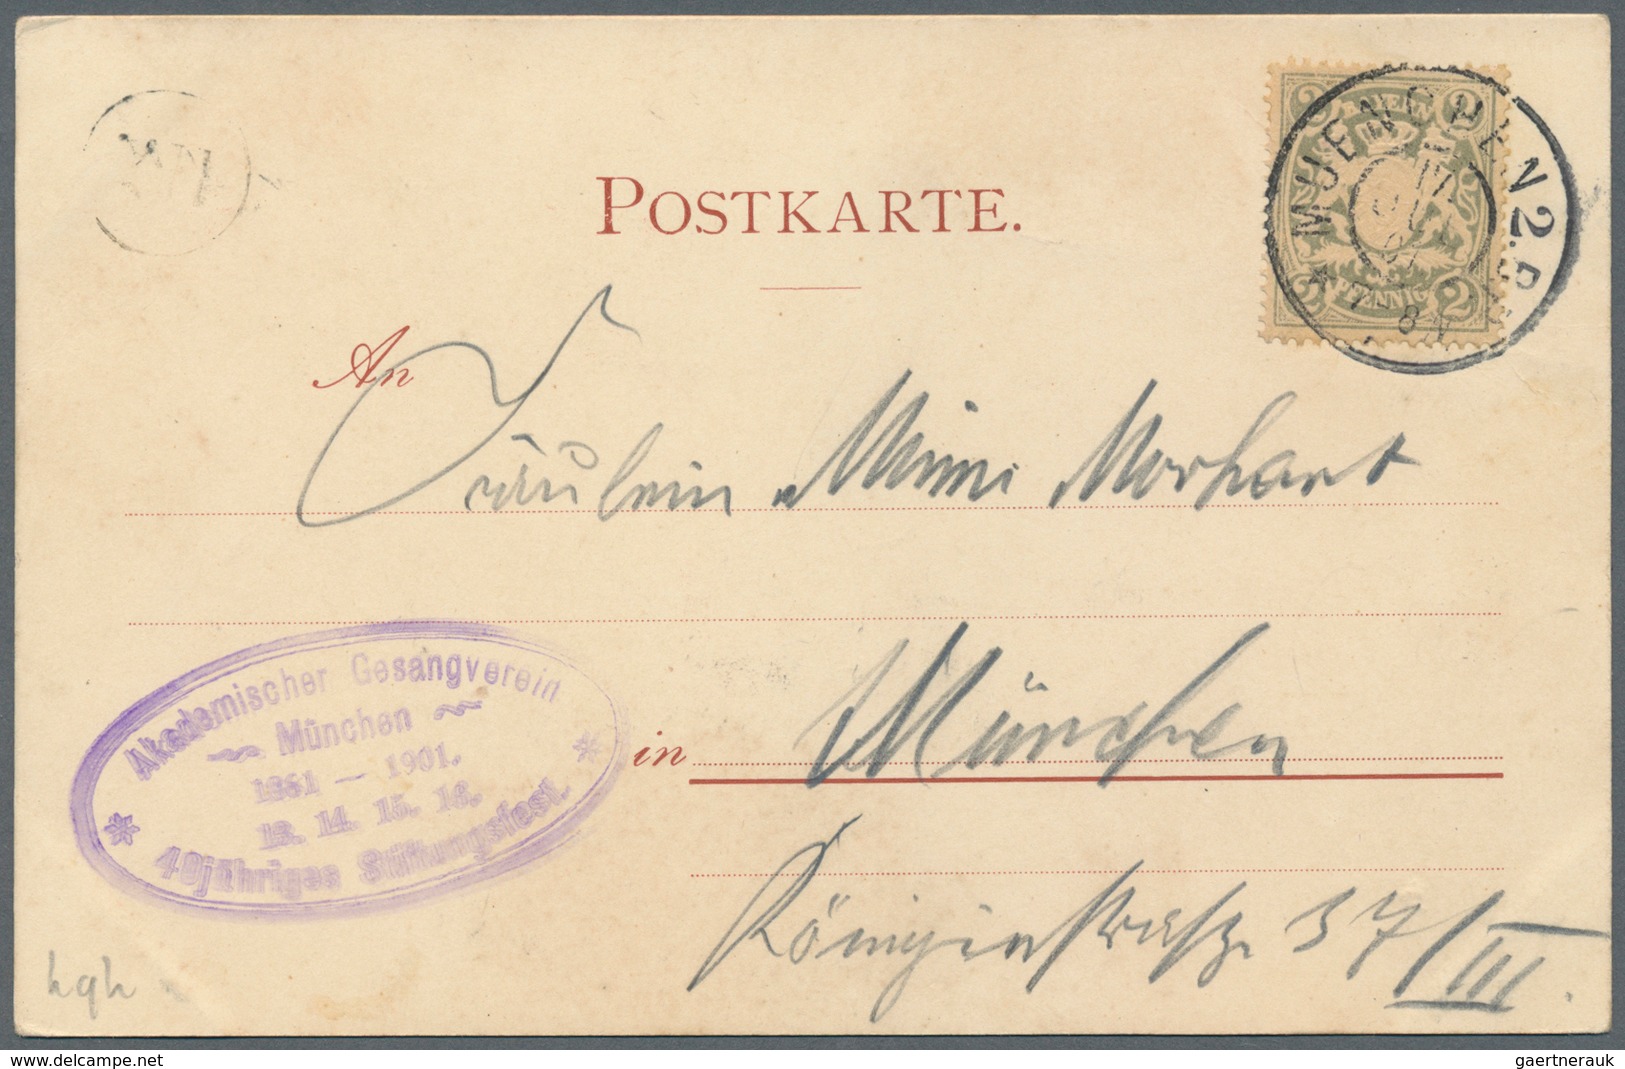 POSTKARTE.
BAYERN
2 2
2 2
PFENNIG
MUENCHEN 2.
An
Fräulein Mimi Morhart
in München
Königinstrasse 37/III.
Akademischer Gesangverein
München
1861 – 1901.
13. 14. 15. 16.
40jähriges Stiftungsfest.
www.delcampe.net
gaertnerauk